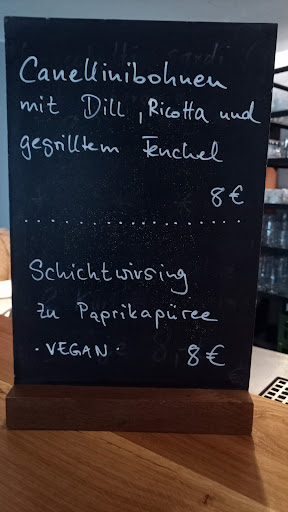 Canellinibohnen
mit Dill, Ricotta und
gegrilltem Fenchel
8€
Schichtwirsing
zu Paprikapüree
· VEGAN · 8€